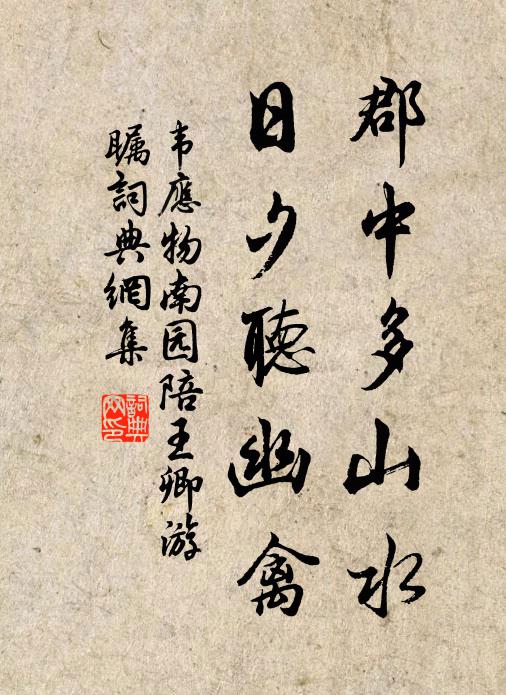 郡中多山水
日夕聽幽禽
韦應物南园陪王卿游
瞩詞典網集
詞典網印